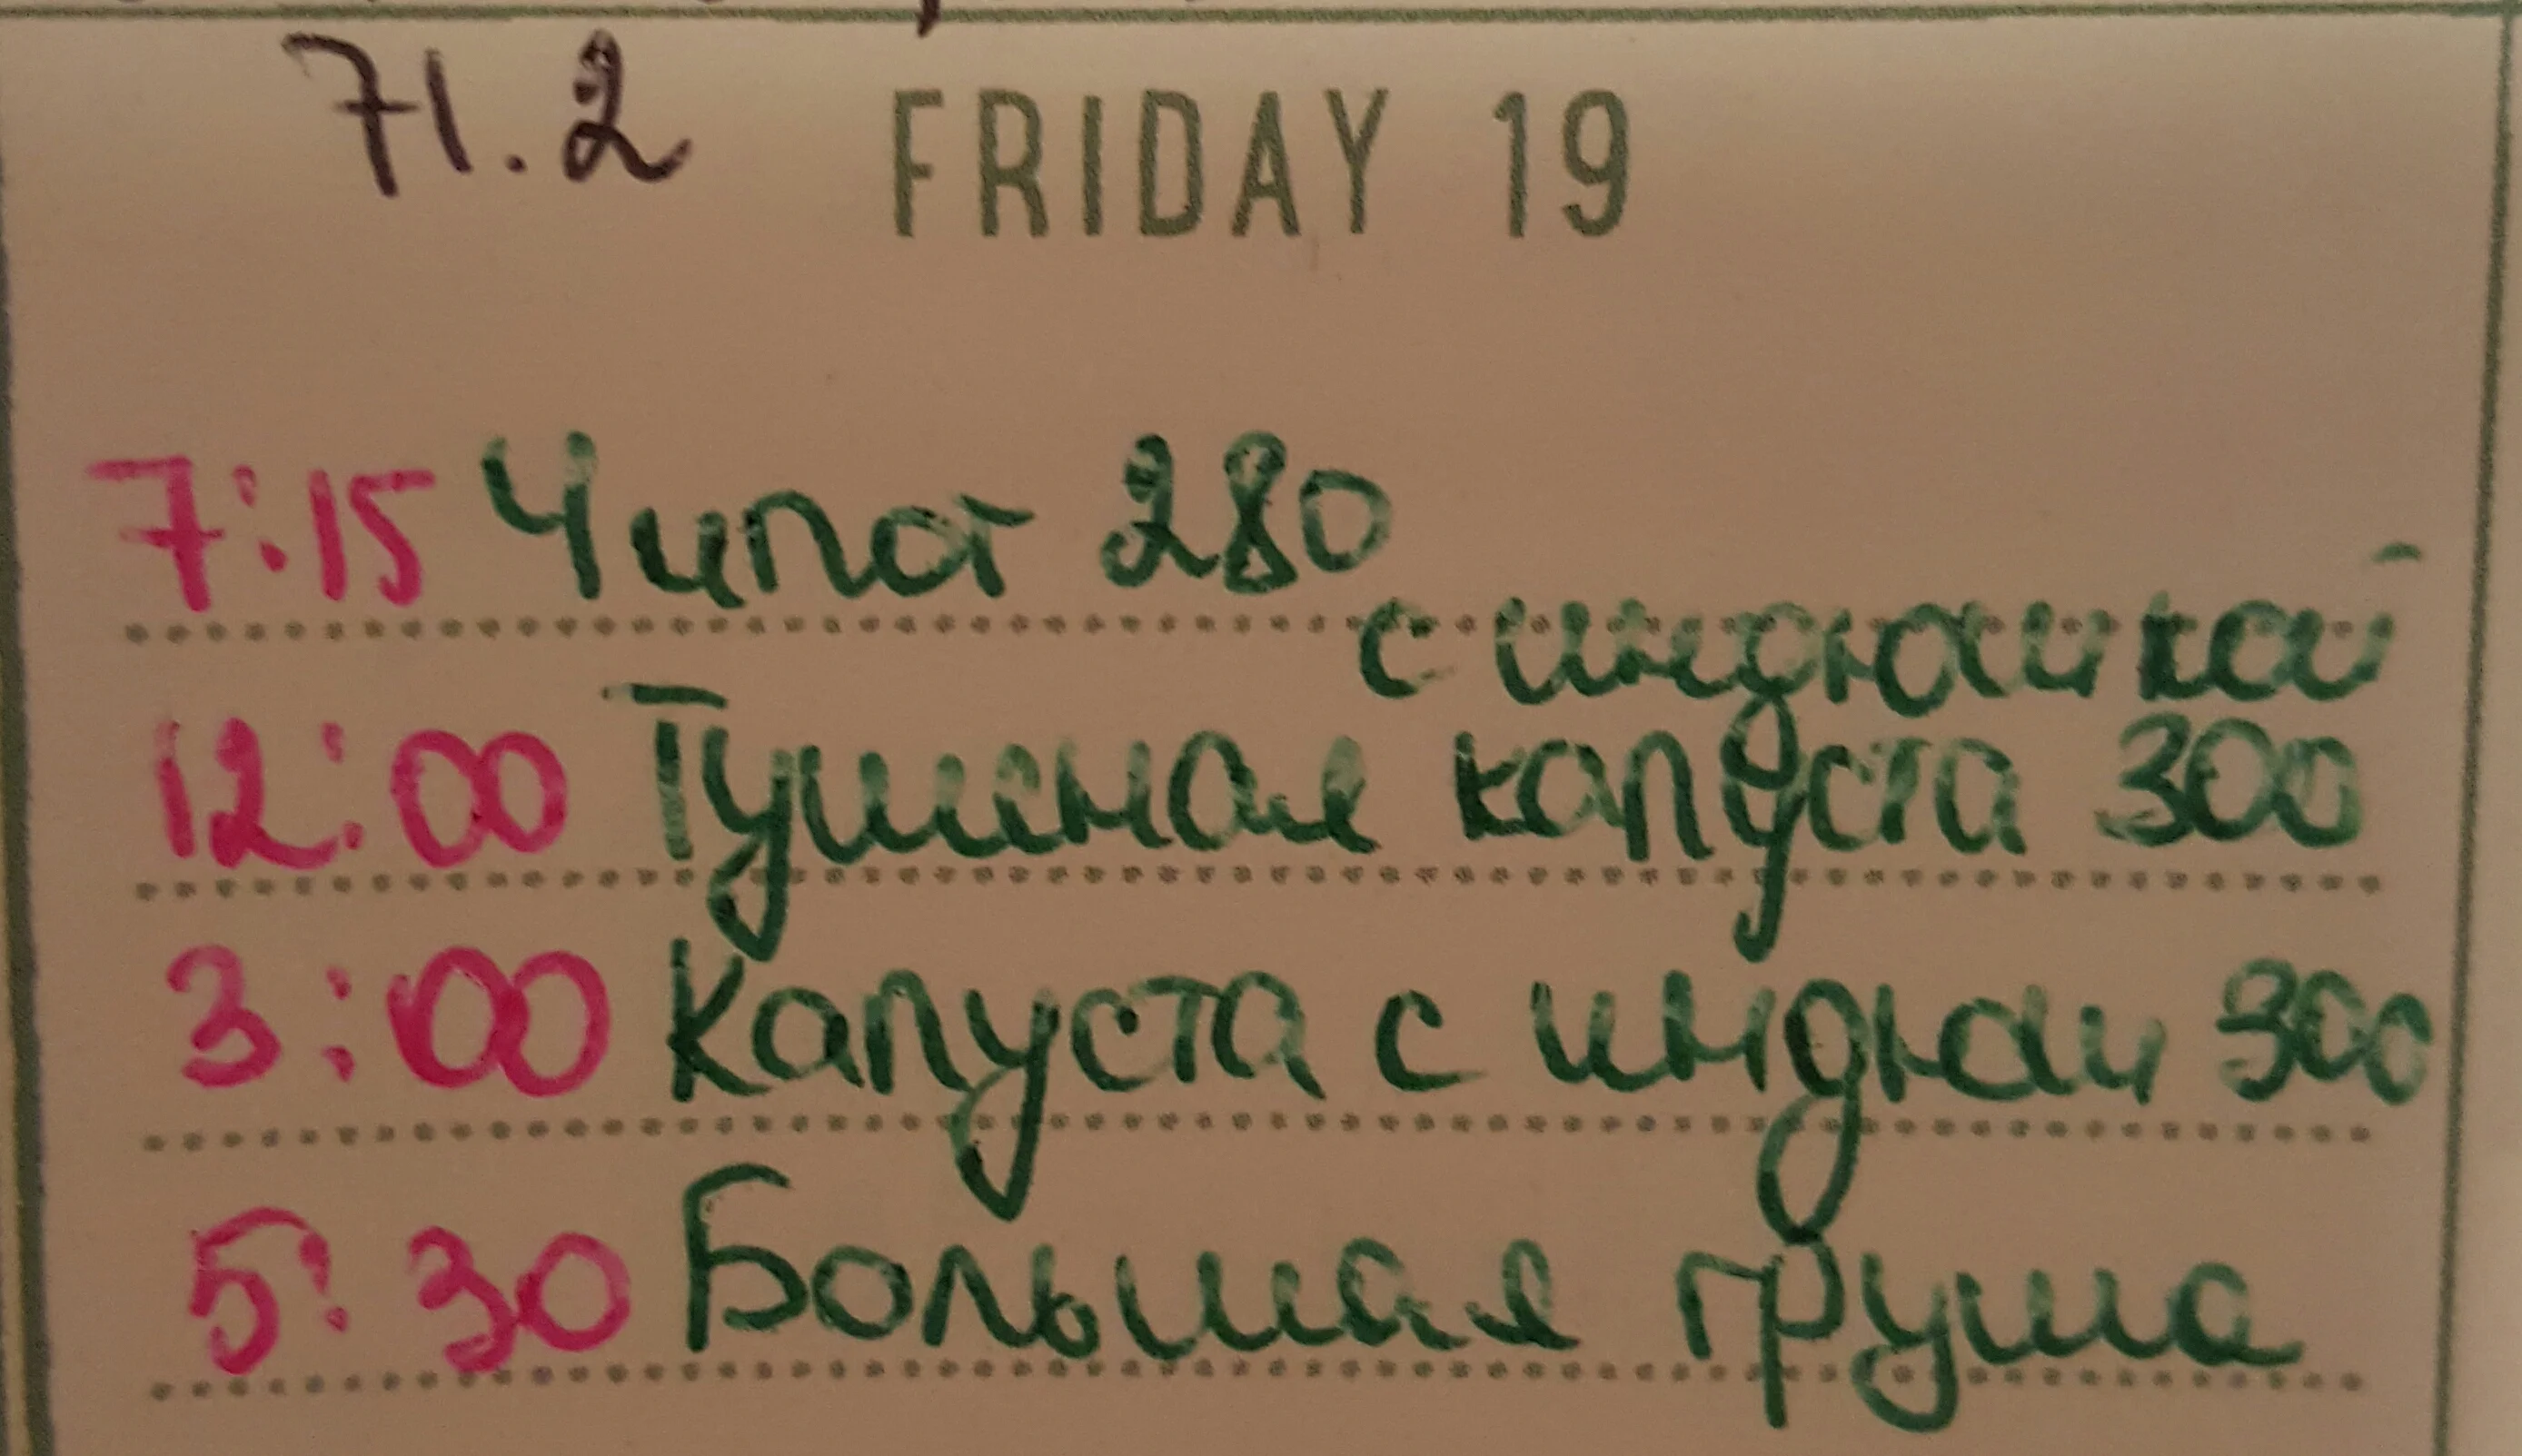 71.2 FRIDAY 19
7:15 Чипот 280
с индюшкой
12:00 Тушеная капуста 300
3:00 Капуста с индюш 300
5:30 Большая груша